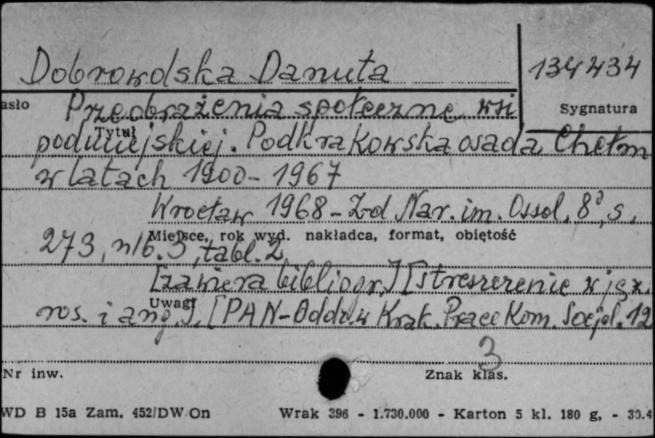 Dobrowolska Danuta
134434
asło
Przeobrażenia społeczne wsi
Sygnatura
Tytuł
podmiejskiej. Podkrakowska osada Chełm
w latach 1900-1967
Wrocław 1968 - Zd Nar. im. Ossol. 8°, s.
Miejsce, rok wyd. nakładca, format, objętość
273, nlb. 3, tabl. 2.
[zawiera bibliogr.] [streszczenie w jęz.
Uwagi
ros. i ang.]. [PAN-Oddz. w Krak. Prace Kom. Socjol. 12
3
Nr inw.
Znak klas.
WD B 15a Zam. 452/DW/On
Wrak 396 - 1.730.000 - Karton 5 kl. 180 g, - 30.4